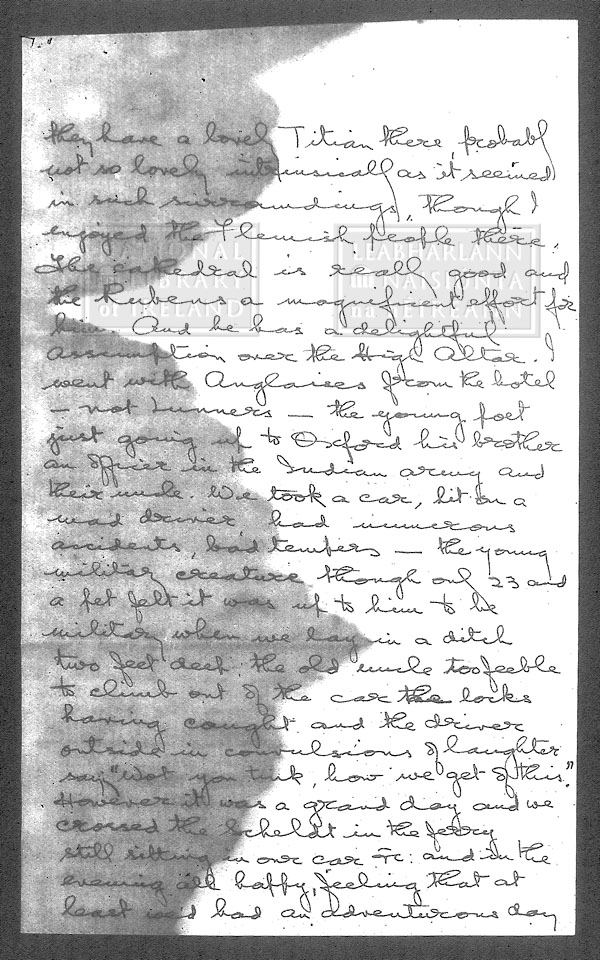 they have a lovely Titian there, probably
not so lovely intrinsically as it seemed
in such surroundings, though I
enjoyed the Flemish people there.
The cathedral is really good and
the Rubens a magnificent effort for
him. And he has a delightful
assumption over the High Altar. I
went with Anglaises from the hotel
— not Lunners — the young poet
just going up to Oxford his brother
an officer in the Indian army and
their uncle. We took a car, hit on a
mad driver, had numerous
accidents, bad tempers — the young
military creature though only 23 and
a pet felt it was up to him to be
military when we lay in a ditch
two feet deep the old uncle too feeble
to climb out of the car the locks
having caught and the driver
outside in convulsions of laughter
say "Wot you tink, how we get of this."
However it was a grand day and we
crossed the Scheldt in the ferry
still sitting in our car &c: and in the
evening all happy, feeling that at
least we'd had an adventurous day
NATIONAL LIBRARY of IRELAND
LEABHARLANN NÁISIÚNTA na hÉIREANN